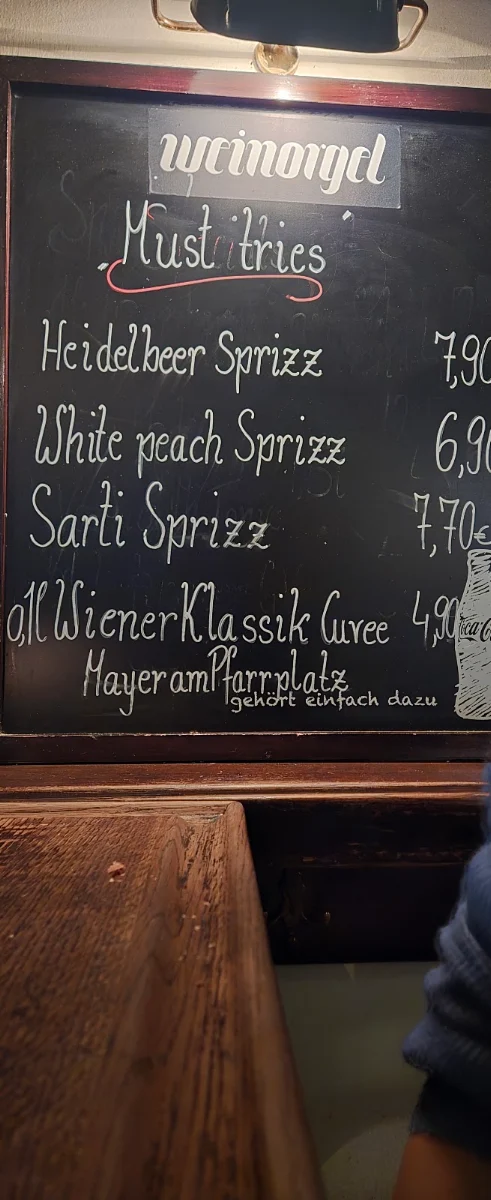 weinorgel
„Must tries"
Heidelbeer Sprizz 7,90
White peach Sprizz 6,90
Sarti Sprizz 7,70€
0,1l Wiener Klassik Cuvee 4,90
Mayer am Pfarrplatz
gehört einfach dazu